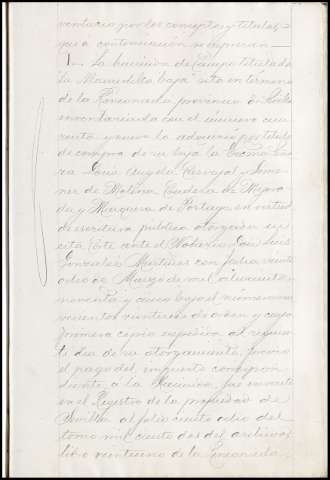 ventario por los conceptos y titulos, 
que a continuacion se expresan
1. La hacienda de Campo titulada
La Mamurdilla baja sita en término
de la Rinconada provincia de Sevilla
inventariada con el número cua-
renta y nueve la adquirió por título
de compra de su hija la Excma Seño-
ra Doña Angela Carvajal y Jime-
nez de Molina Condesa de
y Marquesa de Portago en virtud
de escritura publica otorgada en
esta Corte ante el Notario Don Luis
Gonzalez Martinez con fecha veinte
ocho de Marzo de mil ochocientos
noventa y cinco bajo el número no-
vecientos veintiseis de orden y cuya
primera copia expedida al siguien-
te dia de su otorgamiento, previo
el pago del impuesto correspon-
diente a la Hacienda, fue inscrita
en el Registro de la propiedad de
Sevilla al folio ciento ocho del
tomo mil ciento dos del archivo,
libro veintiuno de la Rinconada